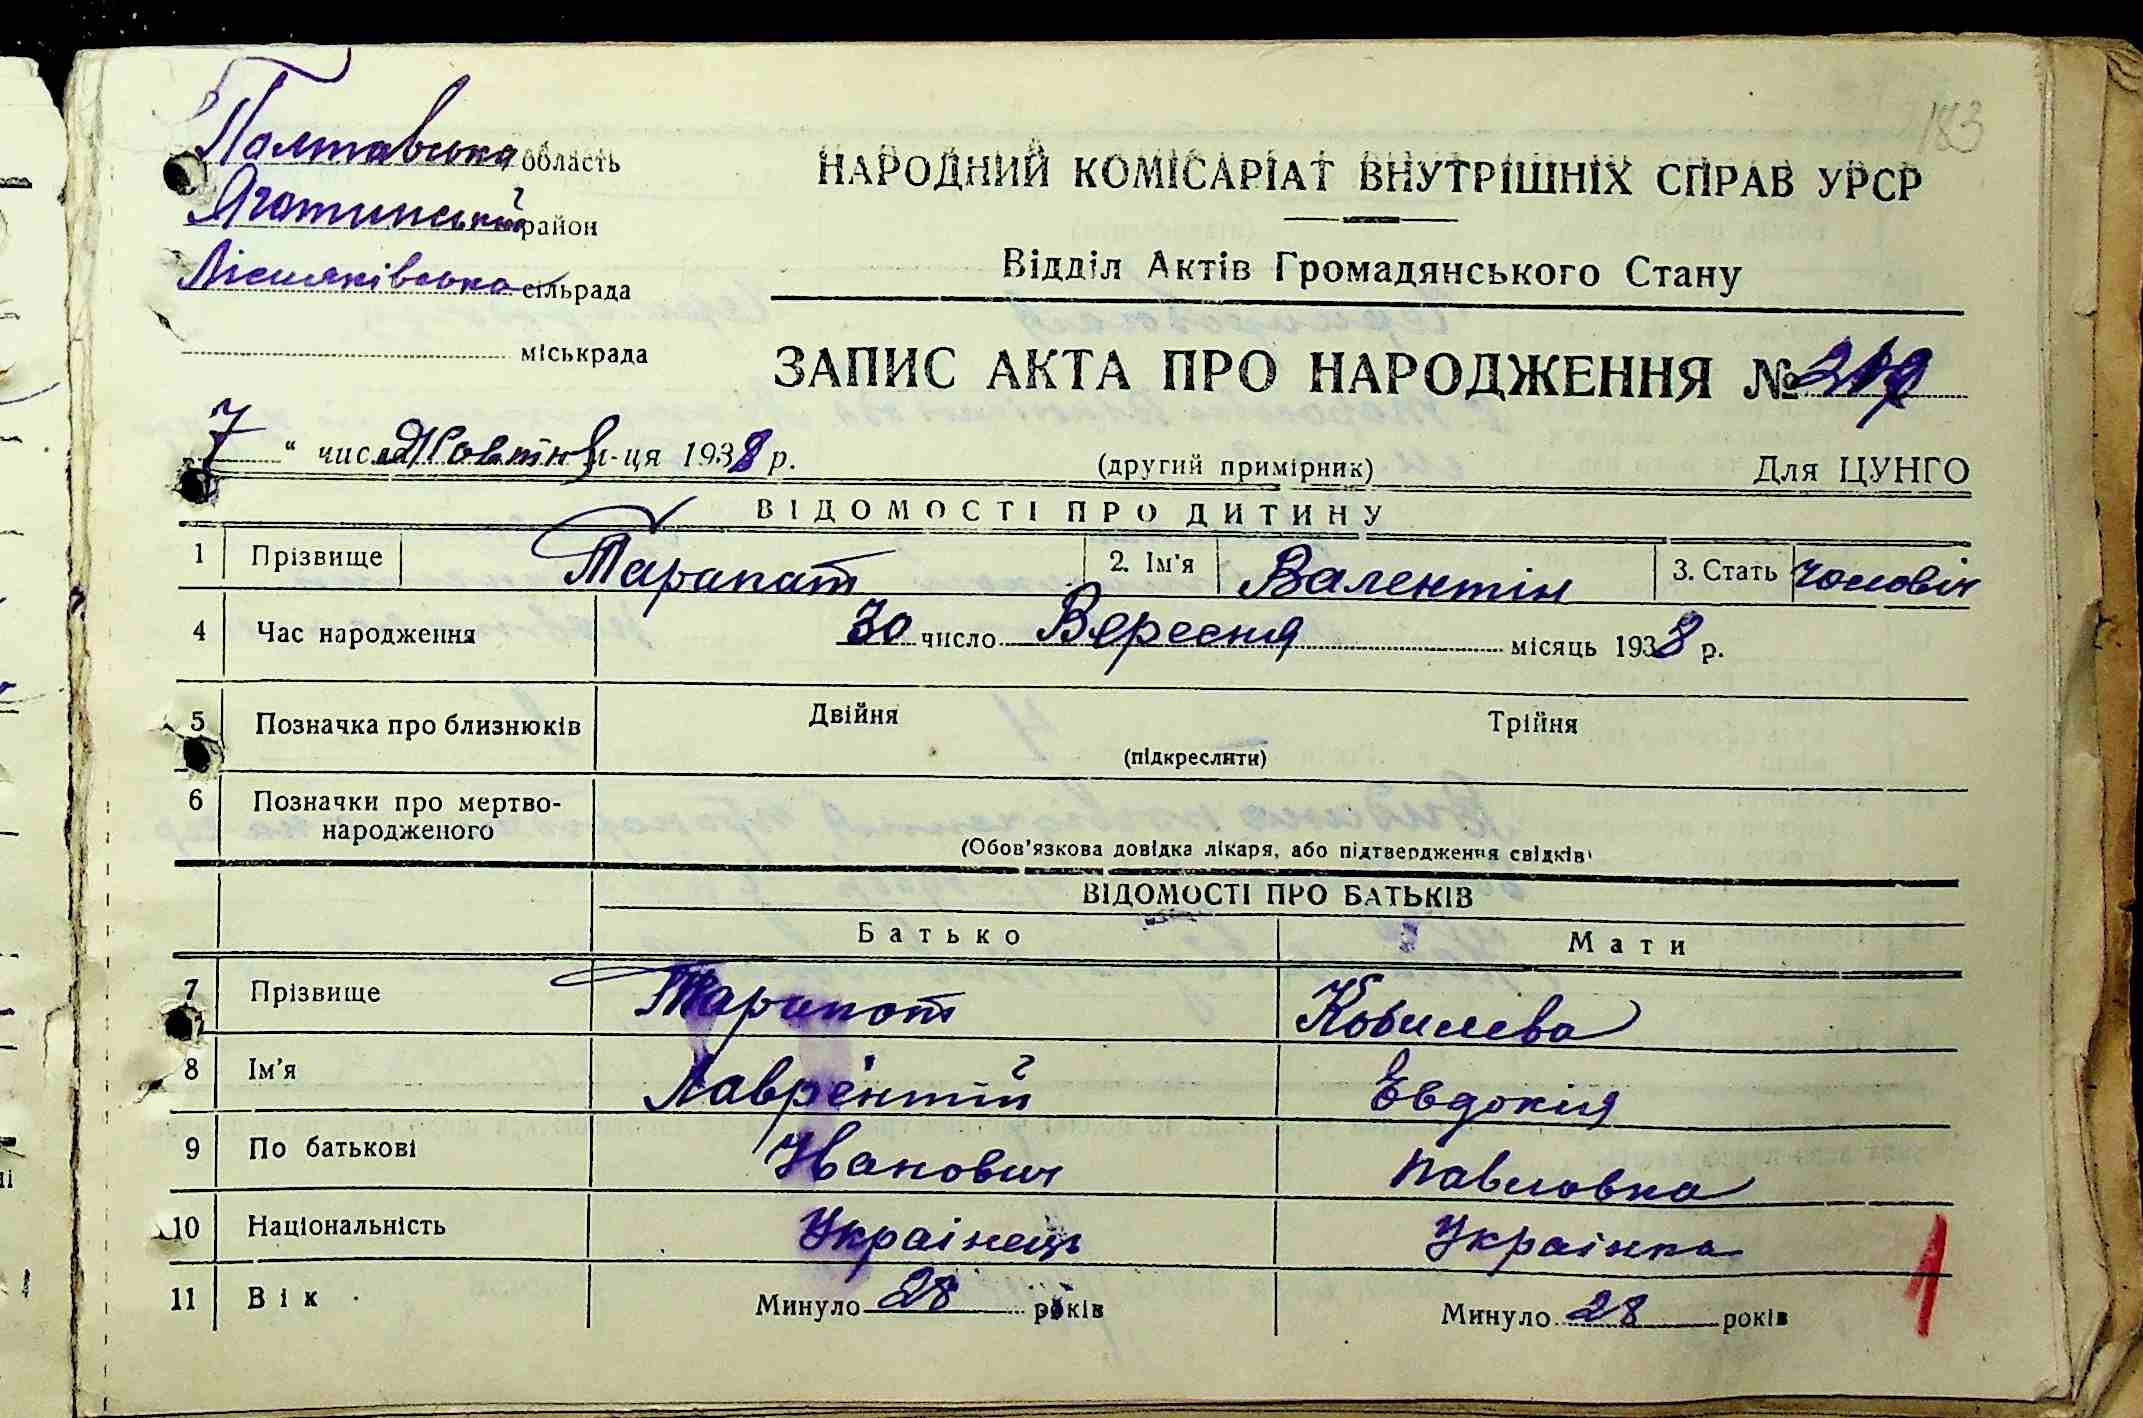 183
Полтавська область
Яготинський район
Лісняківська сільрада
міськрада
НАРОДНИЙ КОМІСАРІАТ ВНУТРІШНІХ СПРАВ УРСР
Відділ Актів Громадянського Стану
ЗАПИС АКТА ПРО НАРОДЖЕННЯ №
7 " числа Жовтня м-ця 1938 р.
(другий примірник)
Для ЦУНГО
ВІДОМОСТІ ПРО ДИТИНУ
1 Прізвище Тарапат 2. Ім'я Валентін 3. Стать чоловіч
4 Час народження 30 число Вересня місяць 1938 р.
5 Позначка про близнюків Двійня Трійня
(підкреслити)
6 Позначки про мертво-
народженого
(Обов'язкова довідка лікаря, або підтвердження свідків)
ВІДОМОСТІ ПРО БАТЬКІВ
Батько Мати
7 Прізвище Тарапат Кобилева
8 Ім'я Лаврентій Евдокия
9 По батькові Иванович Павловка
10 Національність Українець Українка
11 Вік Минуло 28 років Минуло 28 років
1